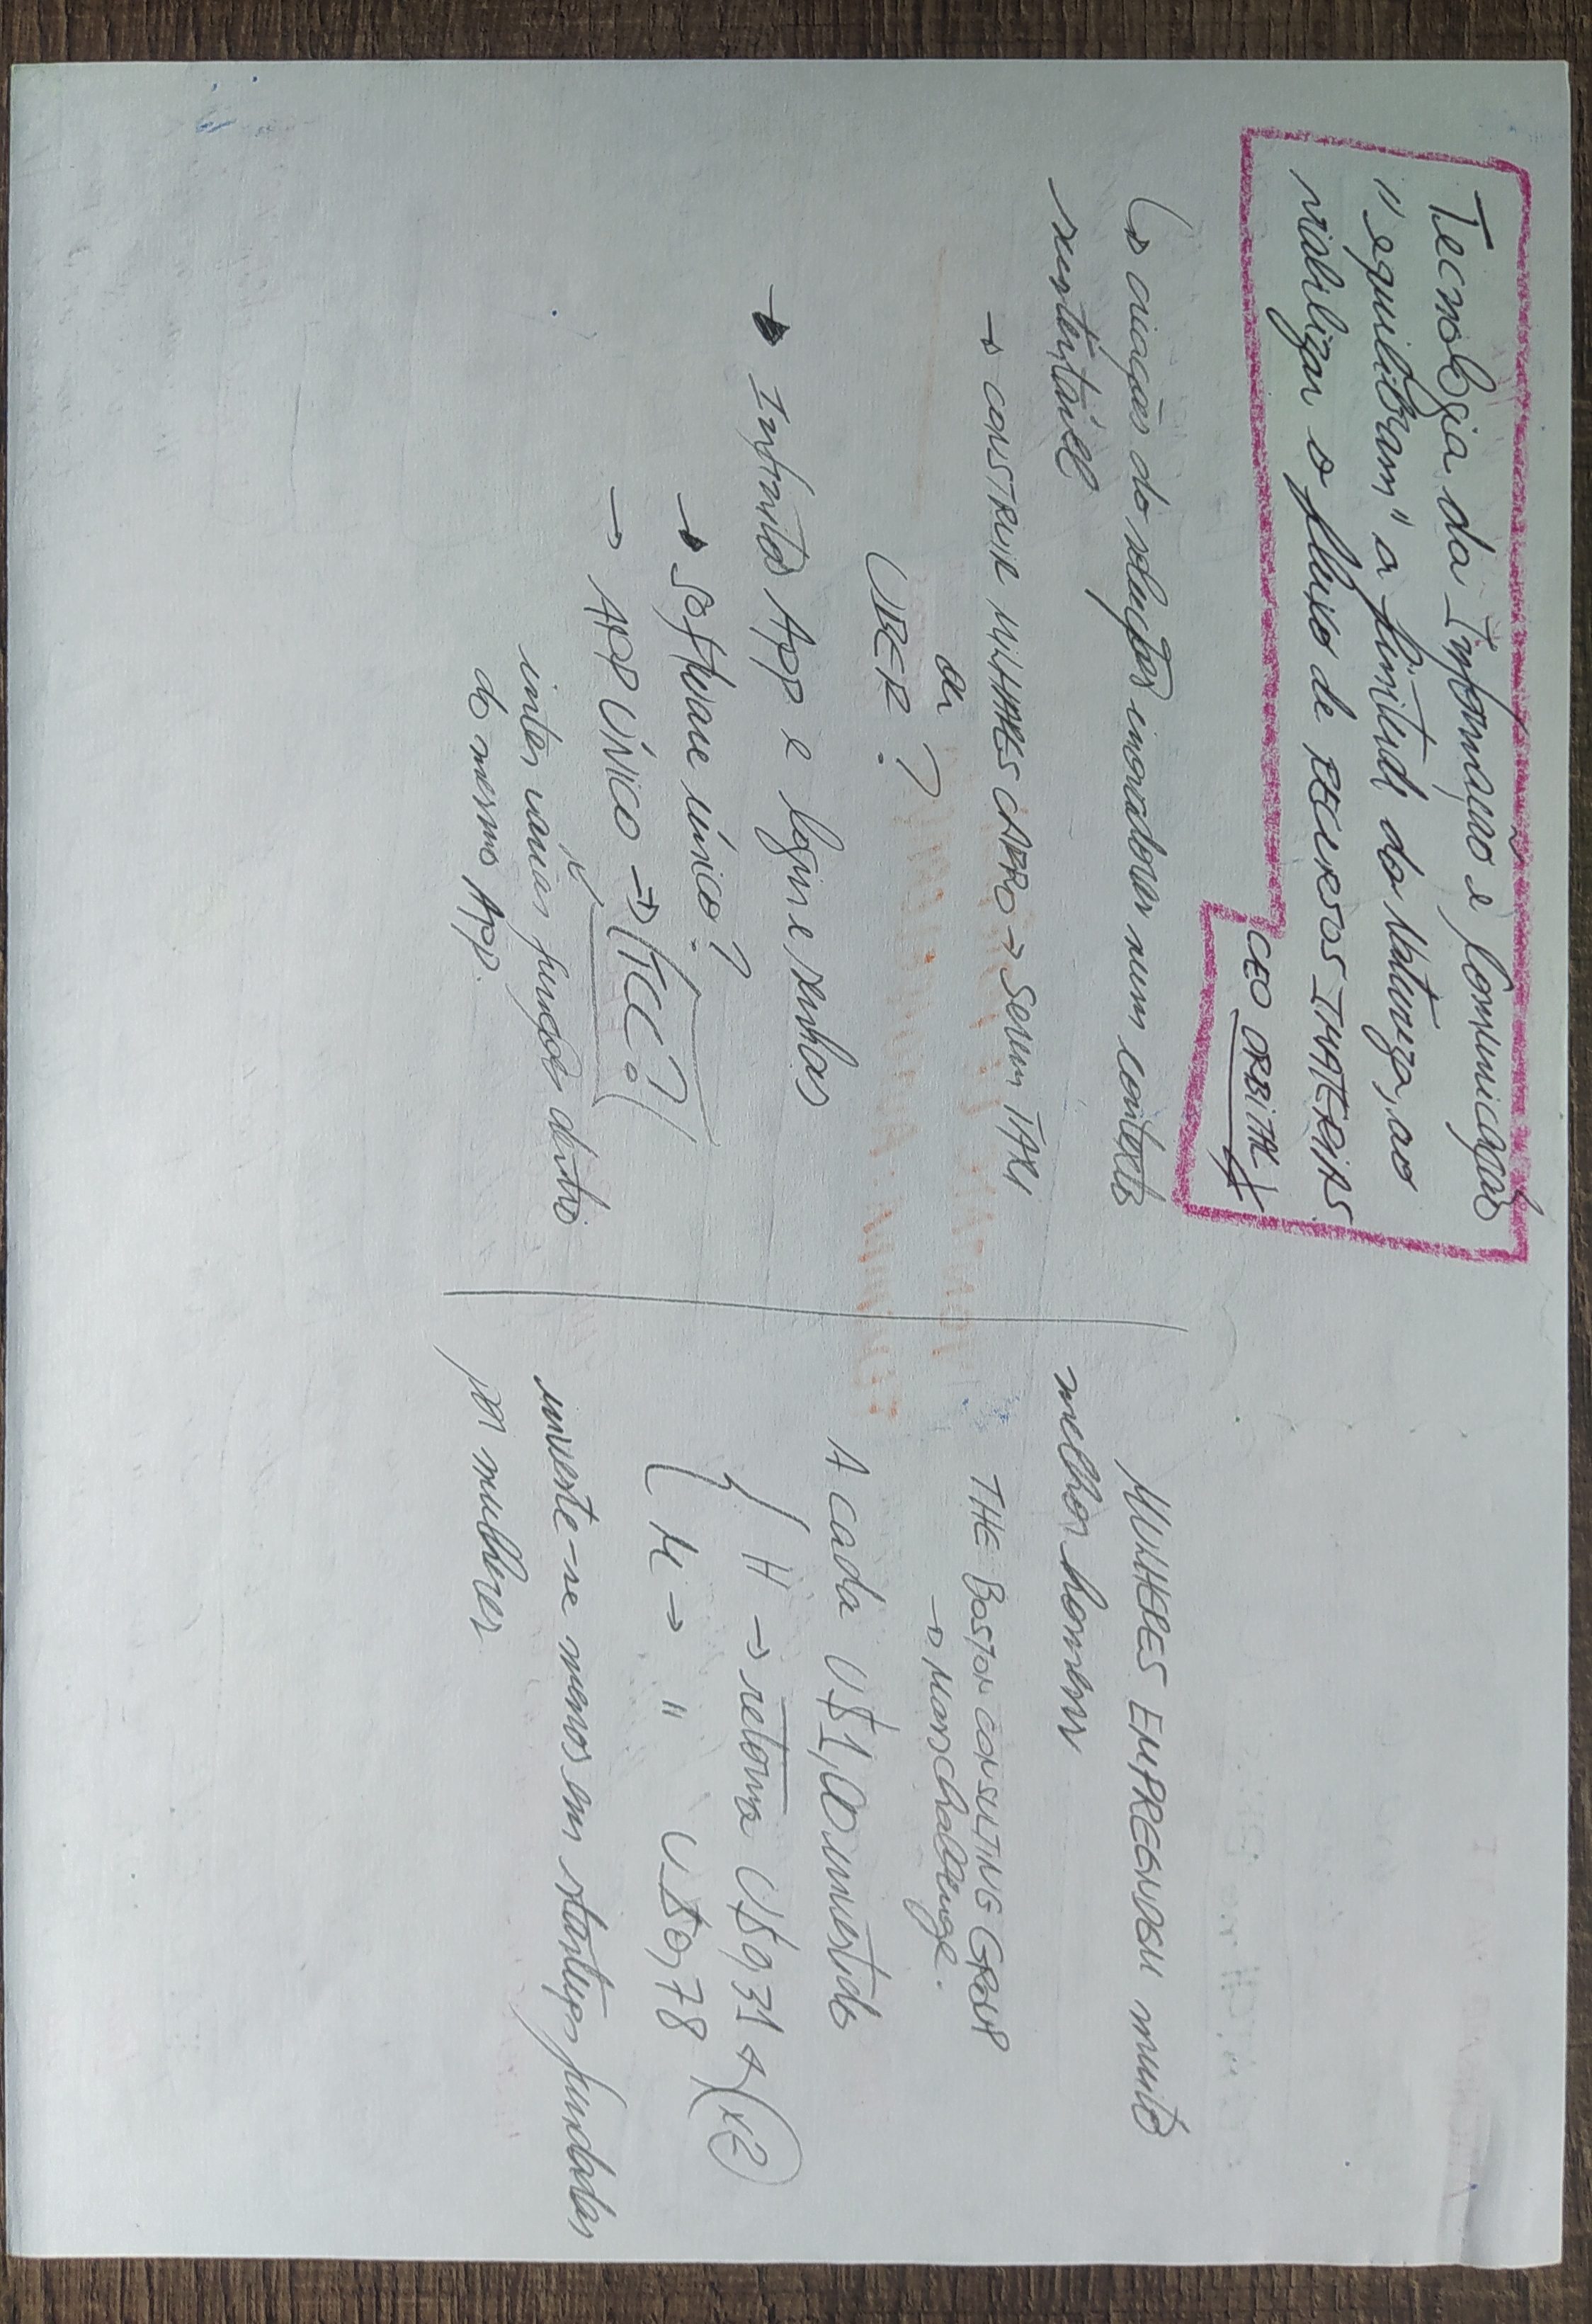 Tecnologia da Informação e Comunicação
"equilibram" a finitude da Natureza, ao
viabilizar o fluxo de RECURSOS IMATERIAS.
CEO ORBITAL
↳ criações do soluções inovadoras num contexto
sustentável
→ CONSTRUIR MILHARES CARRO → Serem TAXI
ou
UBER?
→ Infinitos App e login e senhas
→ software único?
→ APP ÚNICO → TCC?
inter várias funções dentro
do mesmo App.
MULHERES EMPREENDEM muito
melhor homens
THE BOSTON CONSULTING GROUP
→ Masschallenge.
A cada U$1,00 investido
H → retorna U$0,31 x2
M → " U$0,78
investe-se menos em startups fundadas
por mulheres